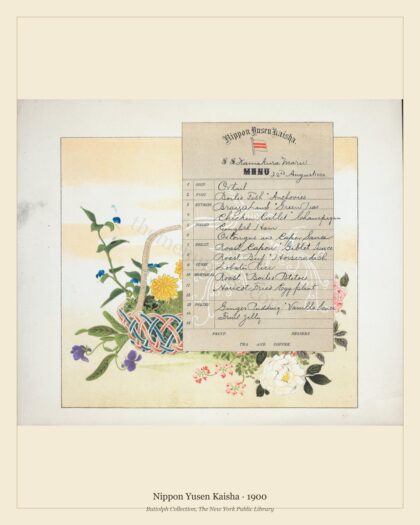 Nippon Yusen Kaisha.
S.S. Kamakura Maru
MENU August 1900
1 SOUP Oxtail
2 FISH Boiled Fish "Anchovies
3 ENTREES Braized and "Green Peas
4 Chicken Cutlet "Champignon
5
6 Ox tongue and Caper Sauce
7 Roast Capon "Giblet Sauce
8 Roast Beef "Horseradish
9 CURRY Lobster Rice
10 Roast "Boiled Potatoes
11 Haricot Fried Egg plant
12
13 PASTRY Ginger Pudding "Vanilla Sauce
14 Fruit Jelly
FRUIT DESSERT
TEA AND COFFEE
Nippon Yusen Kaisha · 1900
Buttolph Collection, The New York Public Library